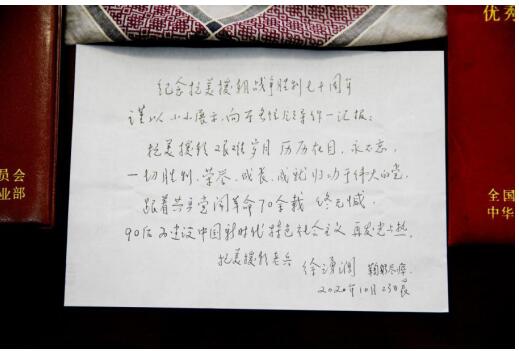 纪念抗美援朝战争胜利七十周年
谨以小小展示,向首长领导作一汇报:
抗美援朝艰难岁月历历在目,永不忘,
一切胜利、荣誉、成长、成就归功于伟大的党,
跟着共产党闹革命70余载 终无憾,
90后为建设中国新时代特色社会主义 再发光与热.
抗美援朝老兵
徐 鞠躬尽瘁.
2020年10月23日
优秀
员会
业部
全国
中华